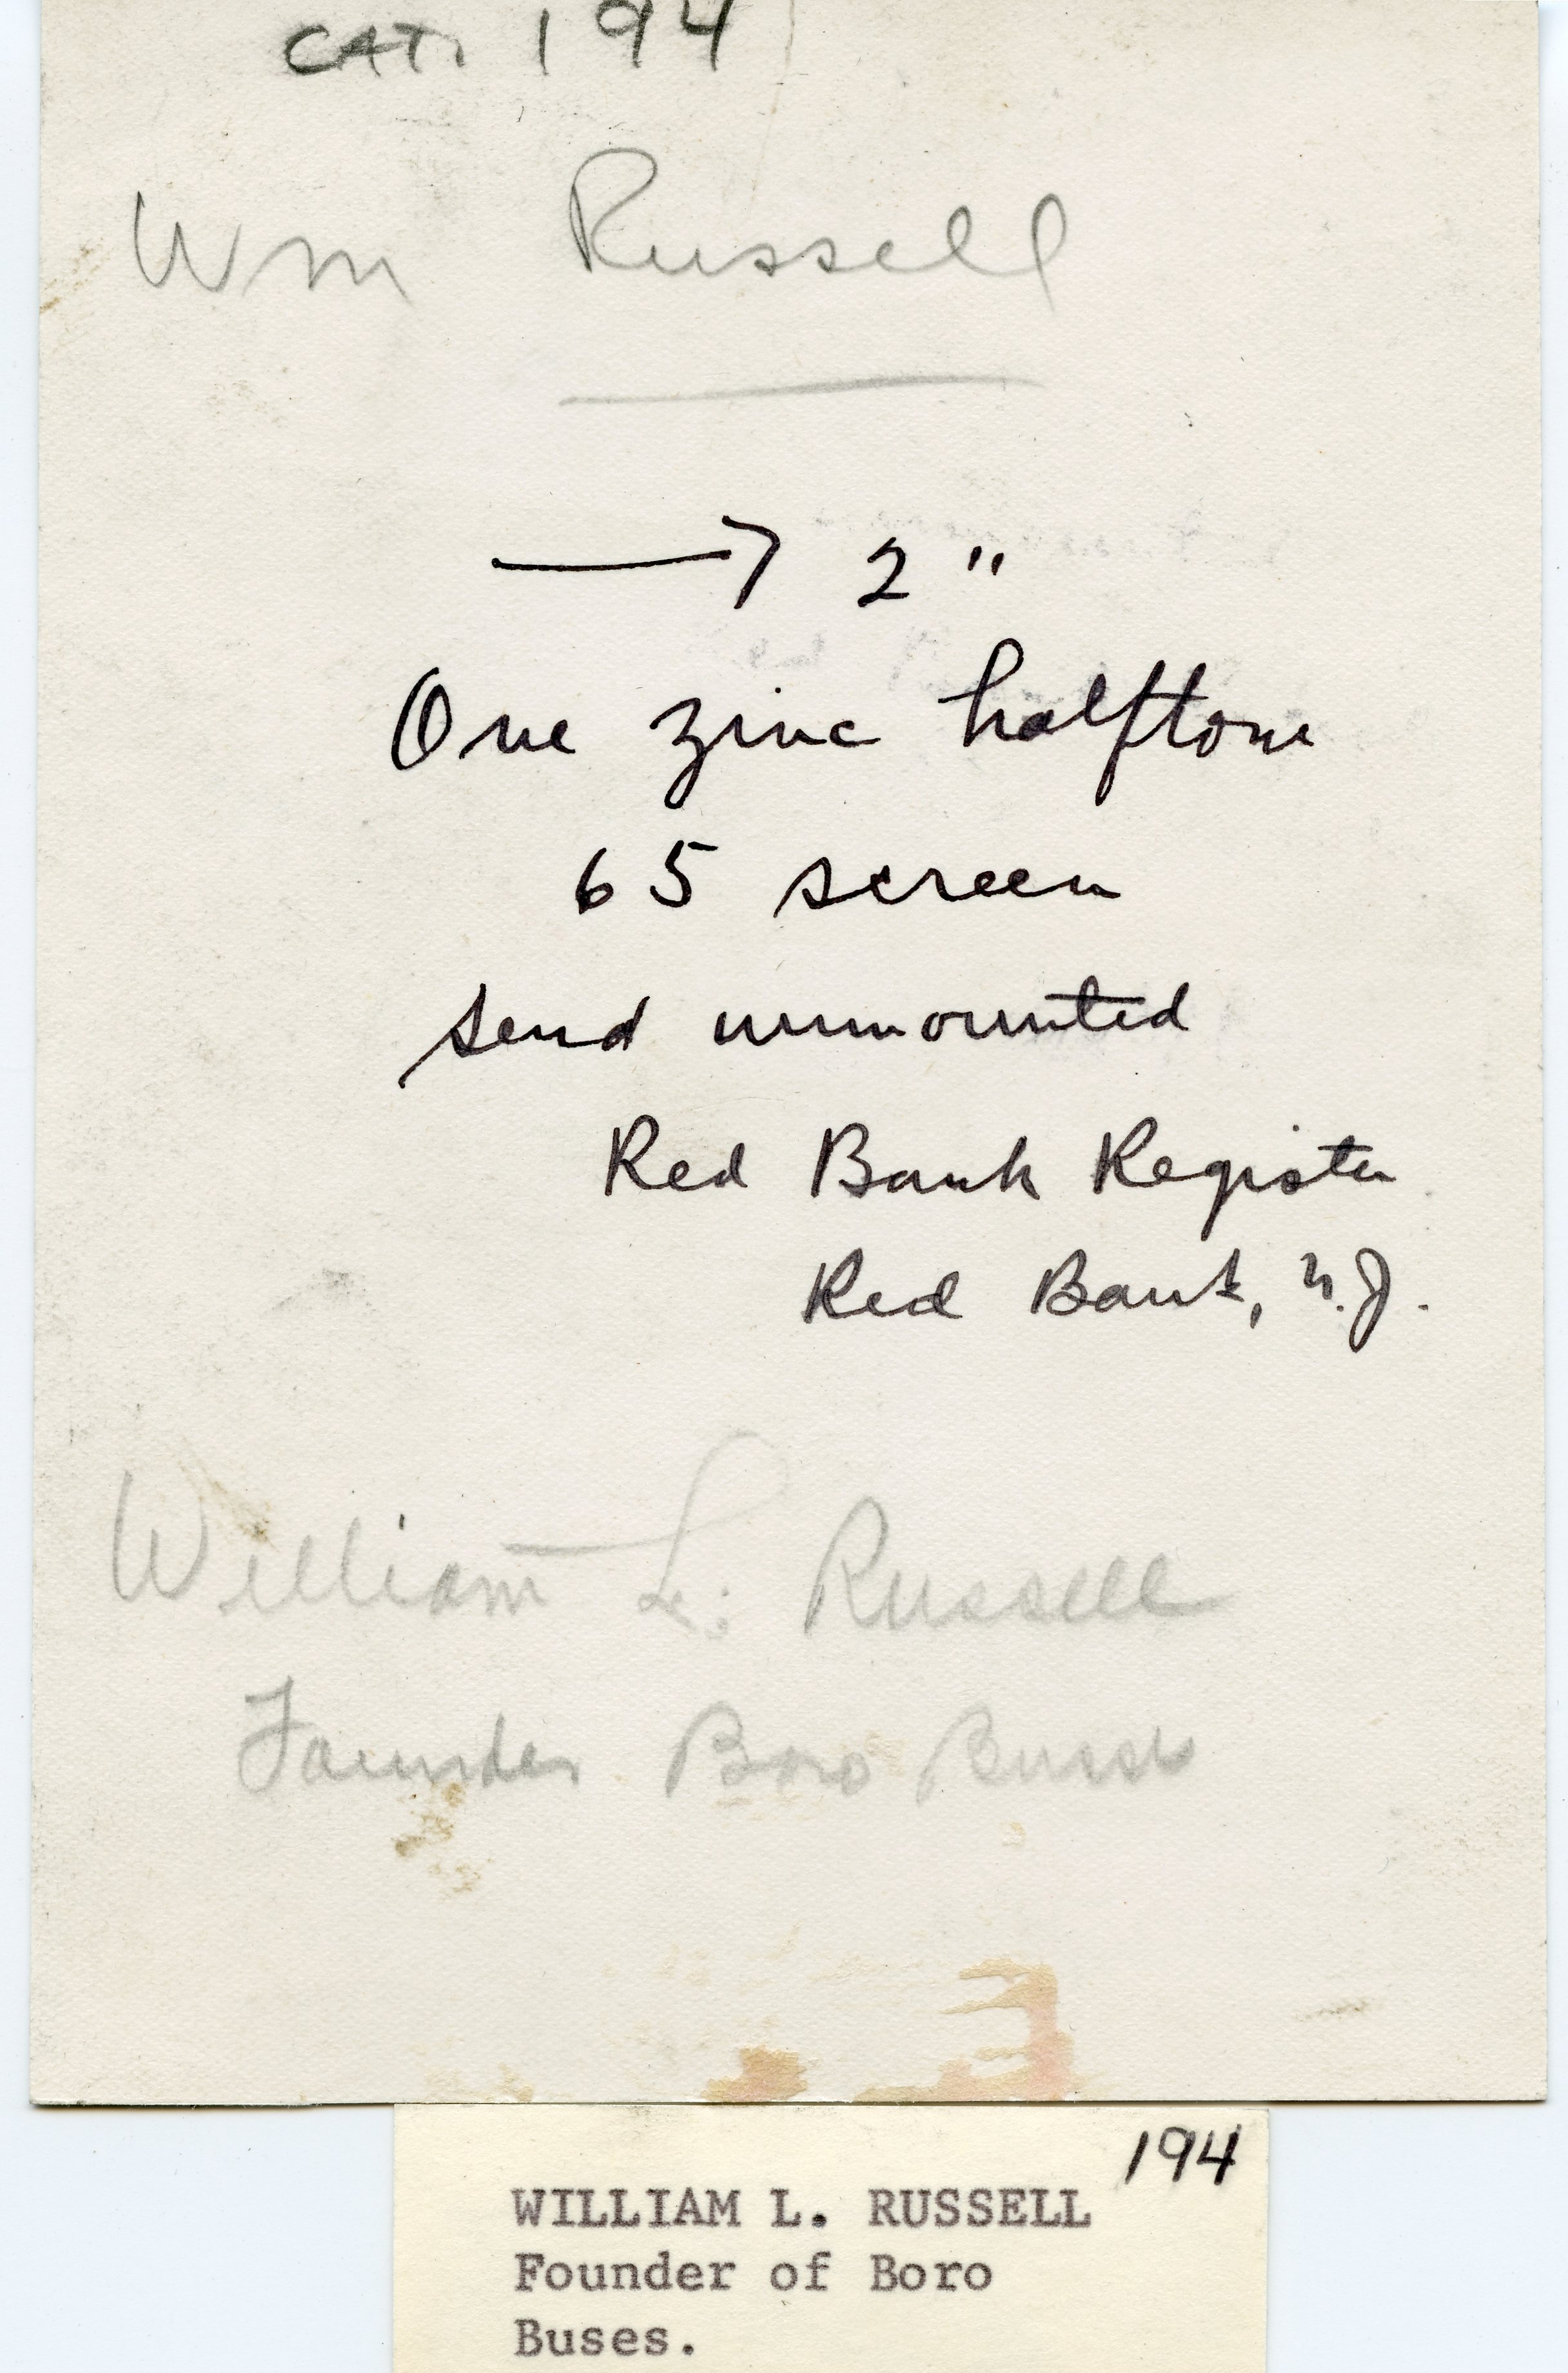 CAT. 194
Wm Russell
→ 2"
One zinc halftone
65 screen
send unmounted
Red Bank Register
Red Bank, N.J.
William L. Russell
Founder Boro Buses
194
WILLIAM L. RUSSELL
Founder of Boro
Buses.